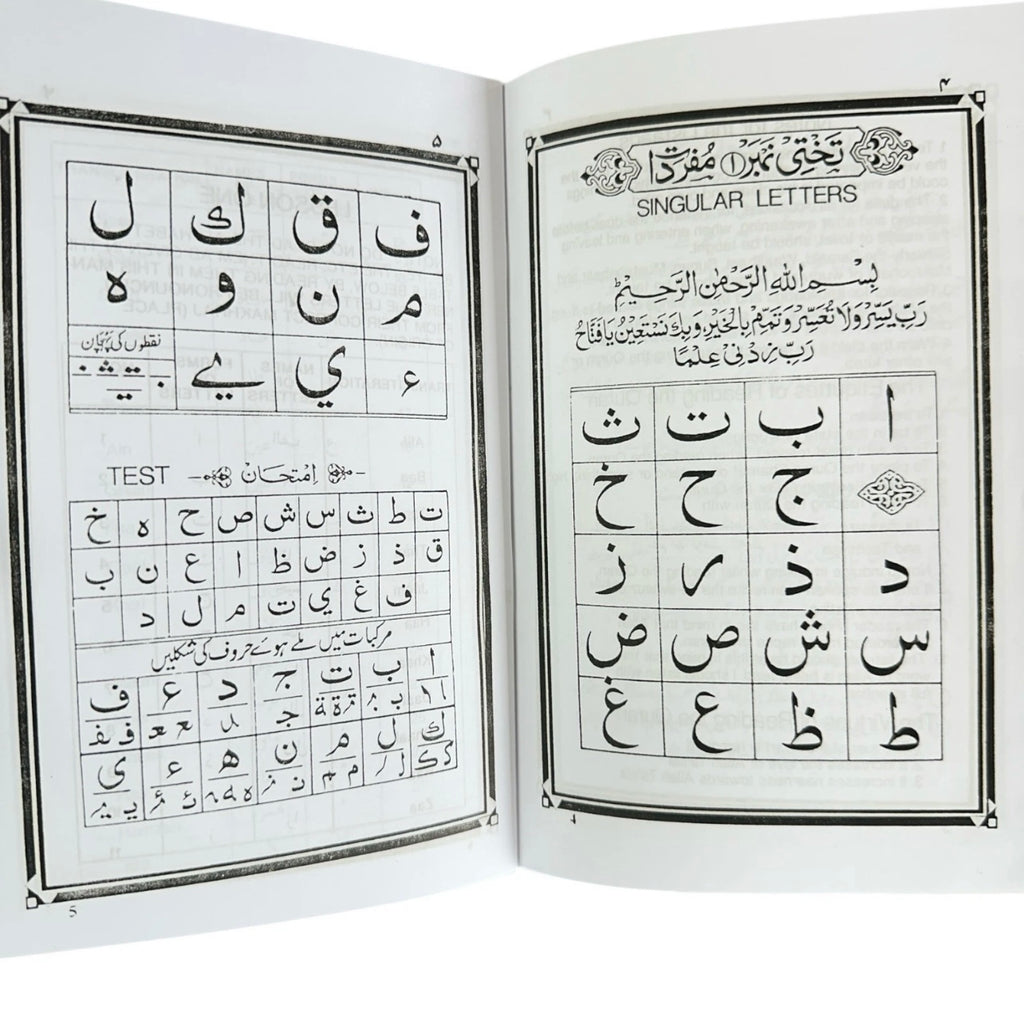 ۴
تختی نمبر ۱ مفردات
SINGULAR LETTERS
بِسْمِ اللهِ الرَّحْمٰنِ الرَّحِيْمِ
رَبِّ يَسِّرْ وَلَا تُعَسِّرْ وَتَمِّمْ بِالْخَيْرِ وَبِكَ نَسْتَعِيْنُ يَا فَتَّاحُ
رَبِّ زِدْنِيْ عِلْمًا
ا ب ت ث
ج ح خ
د ذ ر ز
س ش ص ض
ط ظ ع غ
4
۵
ف ق ك ل
م ن و ه
ء ي ے نقطوں کی پہچان
TEST اِمْتِحَان
ت ط ث س ش ص ح ه خ
ق ذ ز ض ظ ا ع ن ب
ف غ ي ت م ل د
مرکبات میں ملے ہوئے حروف کی شکلیں
ا ب ت ج د ع ف
ك ل م ن ه ء ی
5